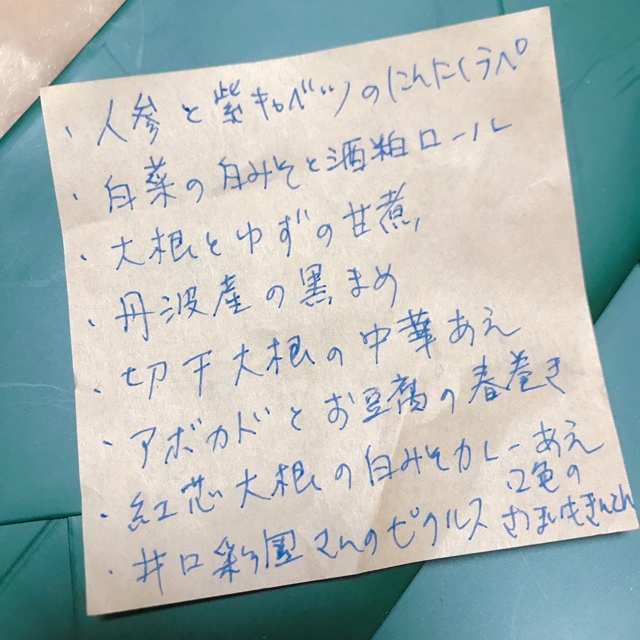 ・人参と紫キャベツのにんにくラペ
・白菜の白みそと酒粕ロール
・大根とゆずの甘煮
・丹波産の黒まめ
・切干大根の中華あえ
・アボカドとお豆腐の春巻き
・紅芯大根の白みそカレーあえ
・井口彩園さんのピクルス
口亀の
おまいもきんとん